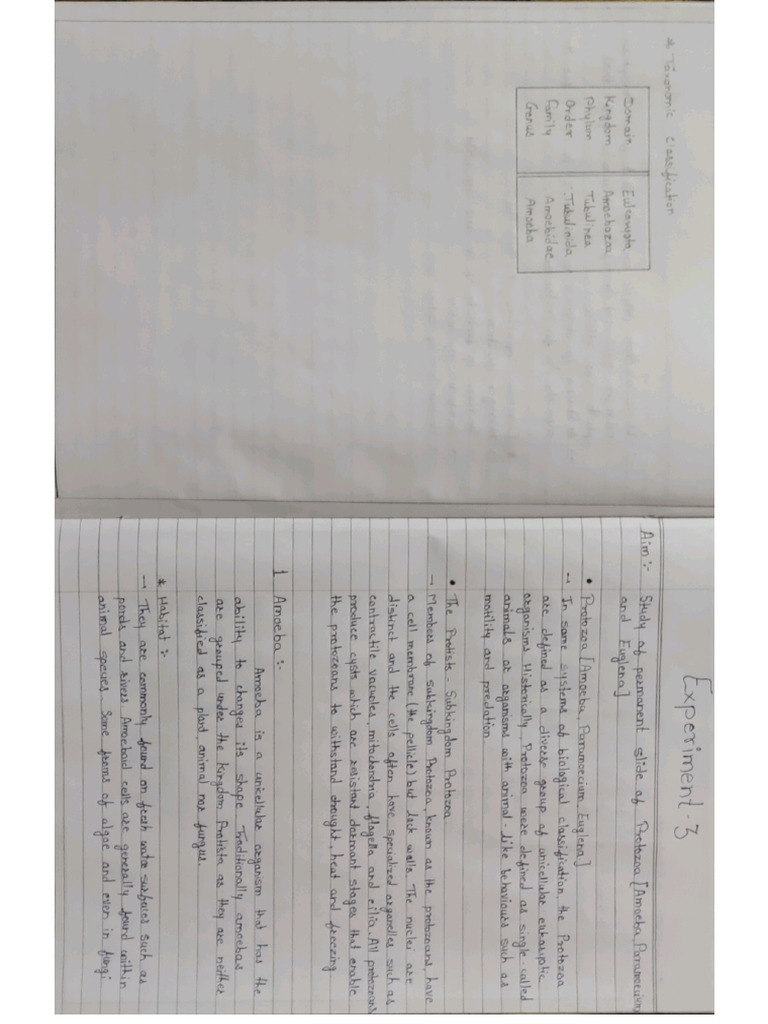 * Taxonomic Classification
Domain Eukaryota
Kingdom Amoebazoa
Phylum Tubulinea
Order Tubulinida
Family Amoebidae
Genus Amoeba
Experiment-3
Aim:- Study of permanent slide of Protozoa [Amoeba, Paramoecium
and Euglena]
• Protozoa [Amoeba, Paramoecium, Euglena]
→ In some systems of biological classification, the Protozoa
are defined as a diverse group of unicellular eukariptic
organisms Historically Protozoa were defined as single-called
animals or organisms with animal-like behaviours such as
motility and predation
• The Protista - Subkingdom Protozoa.
→ Members of subkingdom Protozoa, known as the protozoans, have
a cell membrane (the pellicle) but lack walls. The nuclei are
distinct and the cells often have specialized organelles such as
contractile vacuoles, mitochondria, flagella and cilia. All protozoans
produce cysts which are resistant dormant stages that enable
the protozoans to withstand drought, heat and freezing
1 Amoeba :-
Amoeba is a unicellular organism that has the
ability to changes its shape Traditionally amoebas
are grouped under the Kingdom Protista as they are neither
classified as a plant, animal nor fungus.
* Habitat :-
→ They are commonly found on fresh water surfaces such as
ponds and rivers Amoeboid cells are generally found within
animal species Some forms of algae and even in fungi